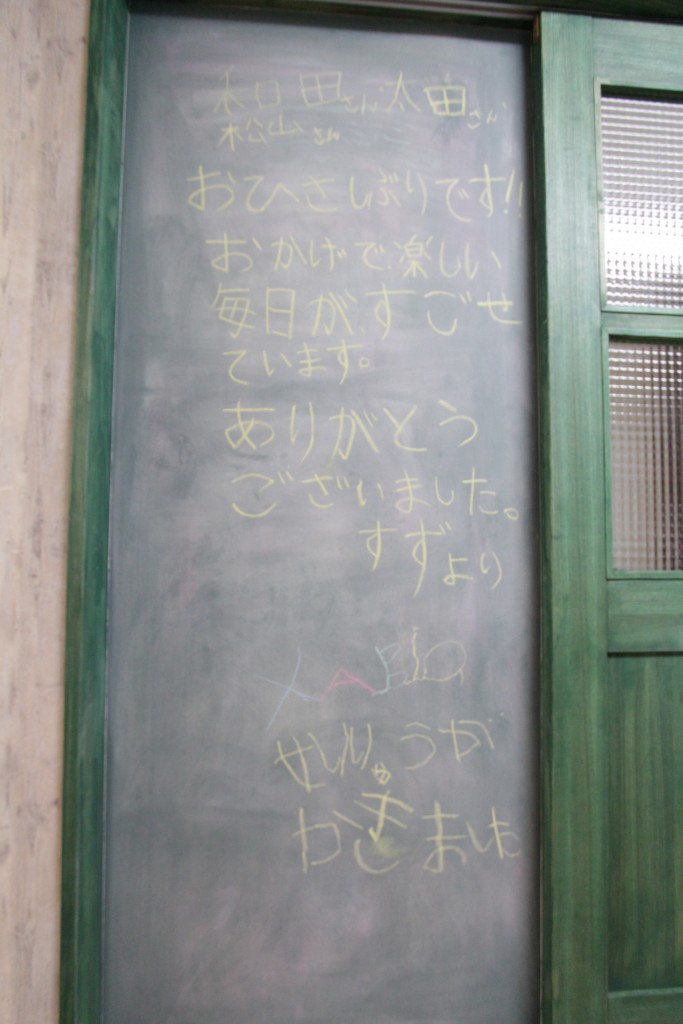 和田さん 太田さん
松山さん
おひさしぶりです!!
おかげで楽しい
毎日がすごせ
ています。
ありがとう
ございました。
すずより
かきました